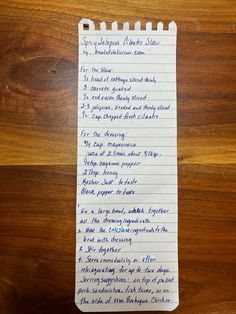 Spicy Jalapeno Cilantro Slaw
by: bowlofdelicious.com
For the Slaw:
1/2 head of cabbage sliced thinly
3 carrots grated
1/2 red onion thinly sliced
2-3 jalapenos, seeded and thinly sliced
1/2 cup chopped fresh cilantro
For the dressing:
3/4 cup mayonnaise
juice of 2 limes about 3 tbsp.
1/4 tsp cayenne pepper
2 tbsp honey
Kosher Salt to taste
Black pepper to taste
1. In a large bowl, whisk together
all the dressing ingredients
2. Add the coleslaw ingredients to the
bowl with dressing
3. Stir together
4. Serve immediately or after
refrigerating for up to two days
Serving suggestions: on top of pulled
pork sandwiches, fish tacos, or on
the side of Oven Barbeque Chicken